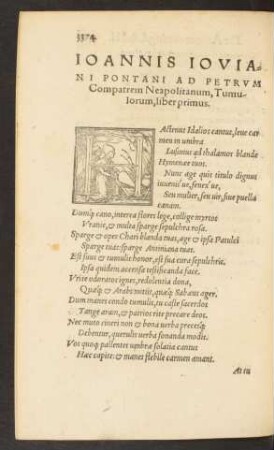 IOANNIS IOVIA-
NI PONTANI AD PETRVM
Compatrem Neapolitanum, Tumu-
lorum, liber primus.
HActenus Idalios cantus, leue car
men in umbra
Lusimus ad thalamos blanda
Hymenæe tuos.
Nunc age quis titulo dignus
iuuenis'ue, senex'ue,
Seu mulier, seu uir, siue puella
canam.
cano, interea flores lege, collige myrtos
Vranie, & multa sparge sepulchra rosa.
Sparge & opes Chari blanda tuas, age & ipsa Patulci
Sparge tuas: sparge Antiniana tuas.
Est suus & tumulis honor, est sua cura sepulchris.
Ipsa quidem accensa testificanda face.
Vrite odoratos ignes, redolentia dona,
Quasq; & Arabs mittit, quasq; Sabæus ager.
Dum manes condo tumulis, tu caste sacerdos
Tange aram, & patrio rite precare deos.
Nec muto cineri non & bona uerba precesq;
Debentur, querulis uerba sonanda modis.
Vos quoq; pallentes umbræ solatia cantus
Hæc capite: & manes flebile carmen amant.
At tu